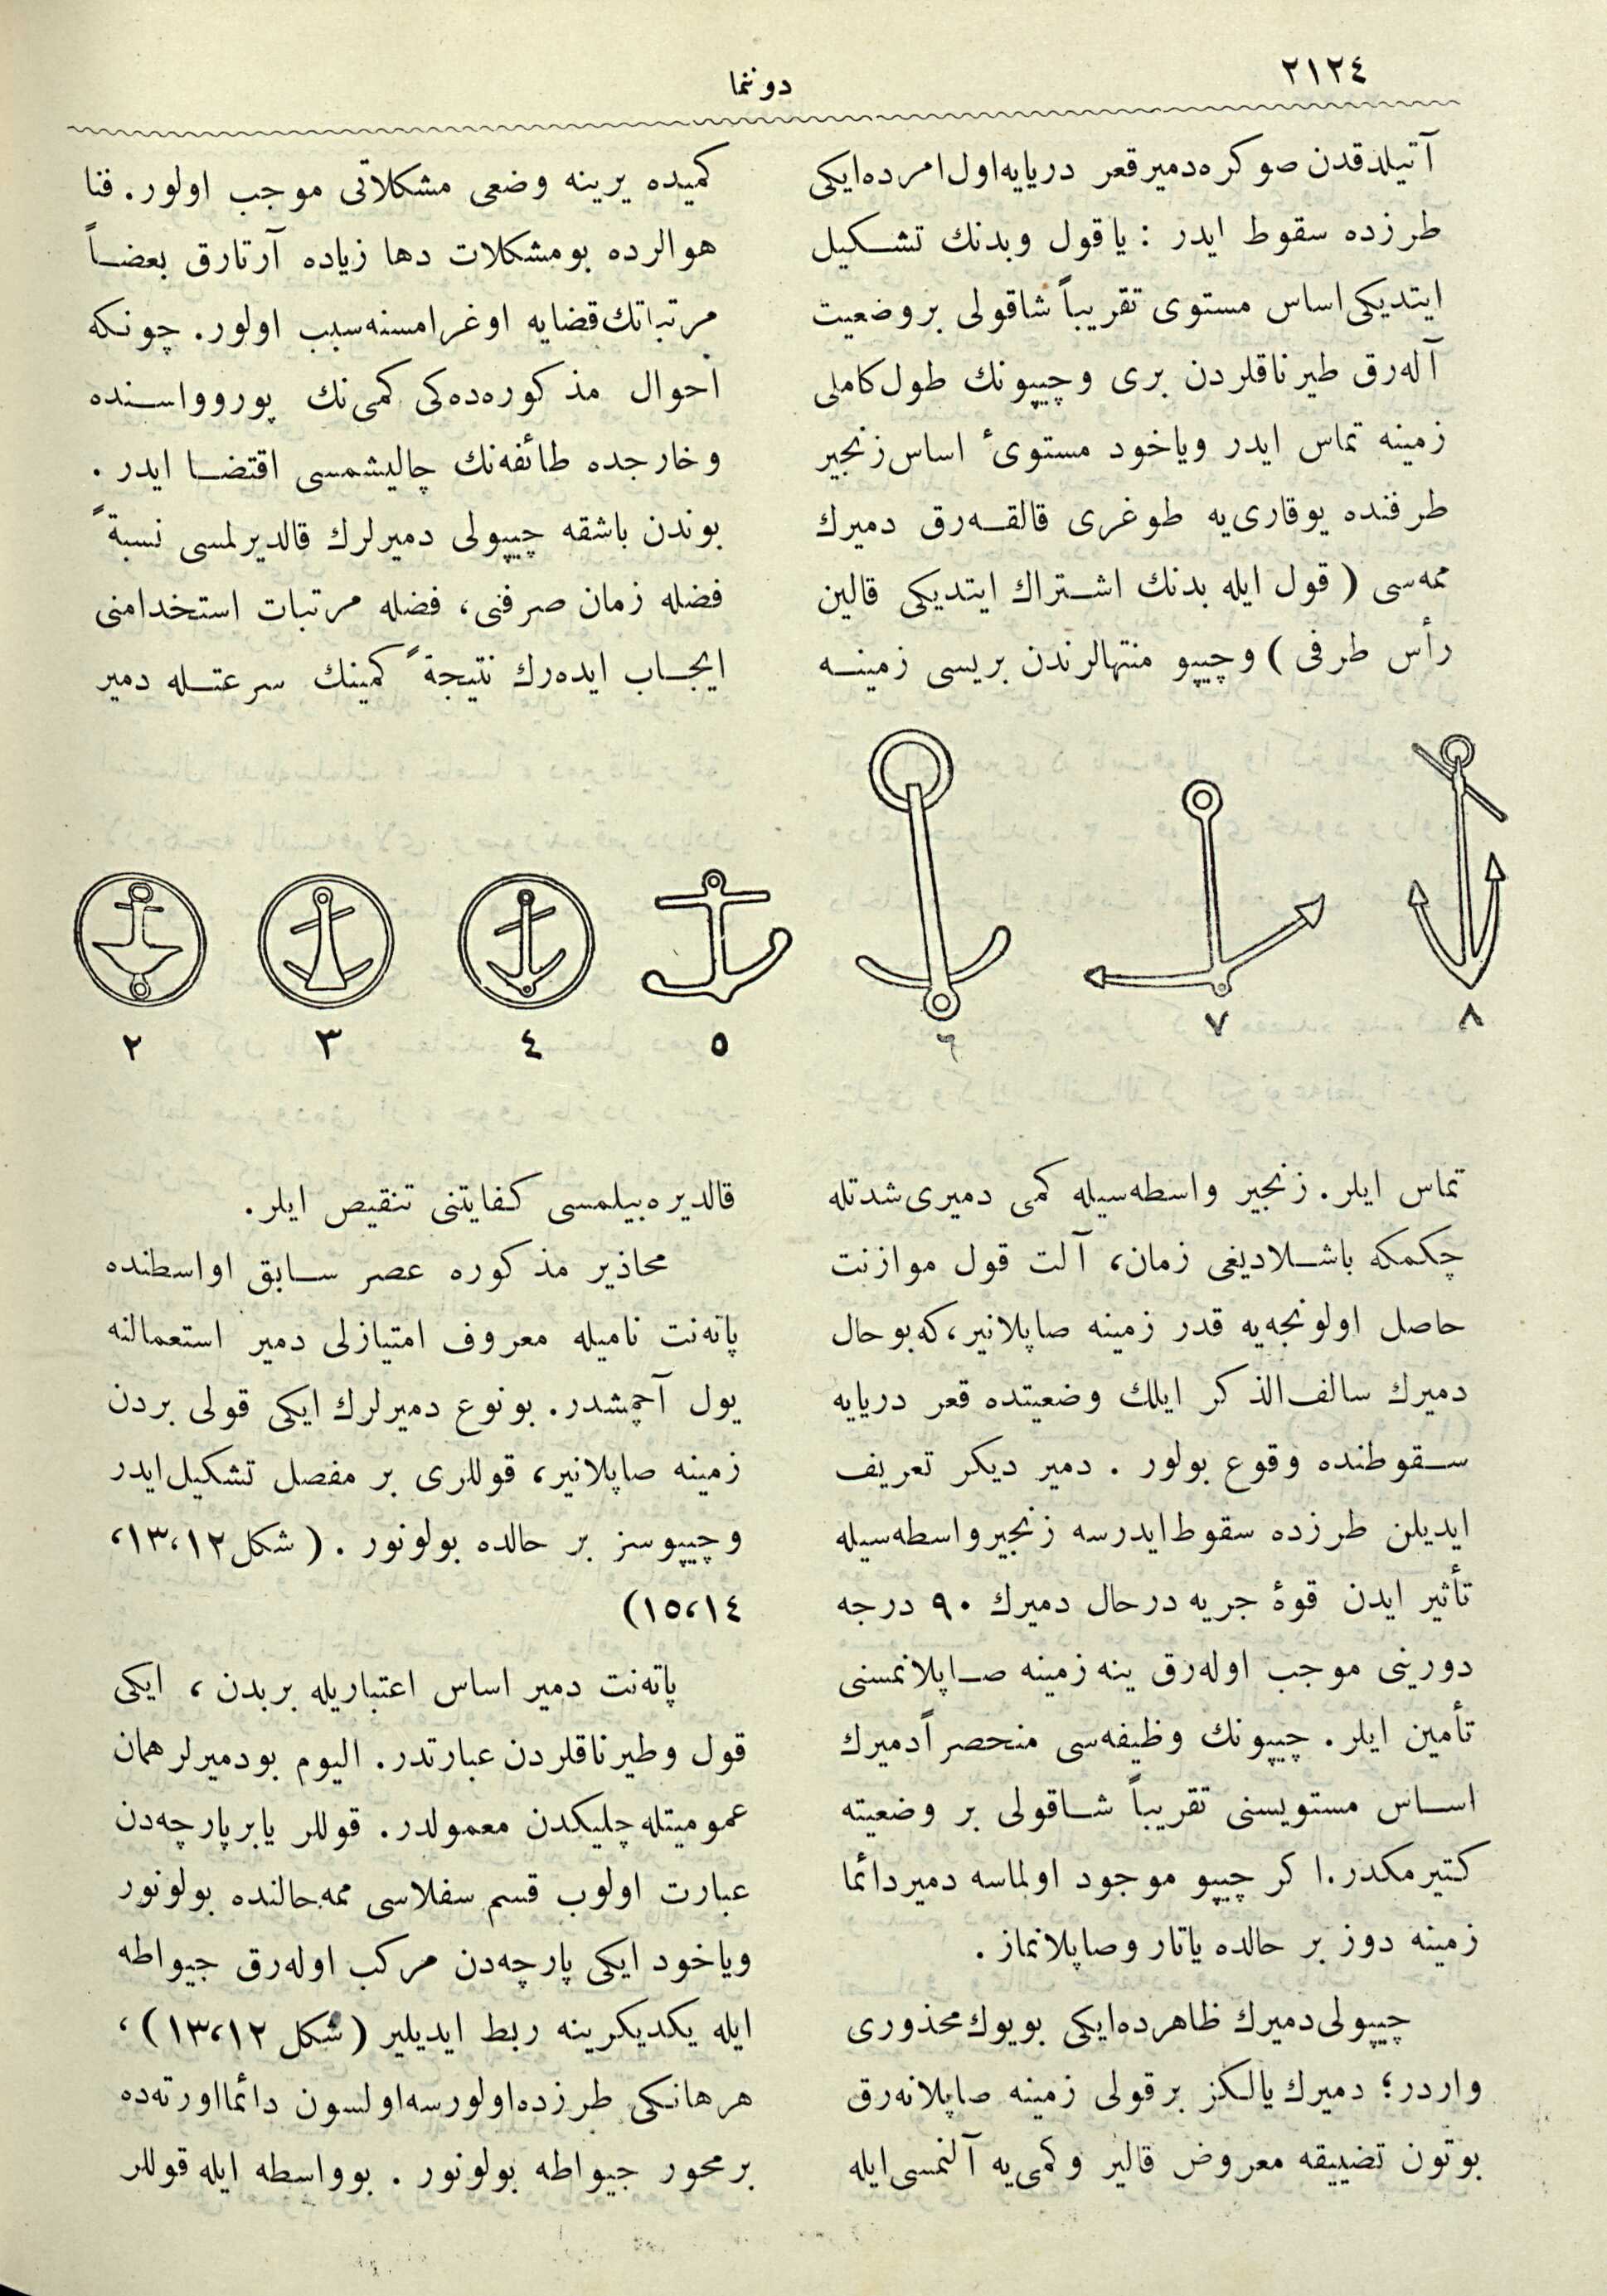 ٢١٢٤
دوننما
آتیلدقدن صوكره‌دمیرقعر دریایه‌اول‌امرده‌ایكی
طرزده سقوط ایدر : یاقول وبدنك تشكیل
ایتدیكی‌اساس مستوی تقریباً شاقولی بروضعیت
آله‌رق طیرناقلردن بری وچیپونك طول‌كاملی
زمینه تماس ایدر ویاخود مستوئ اساس‌زنجیر
طرفنده یوقاری‌یه طوغری قالقه‌رق دمیرك
ممه‌سی ( قول ایله بدنك اشتراك ایتدیكی قالین
رأس طرفی ) وچیپو منتهالرندن بریسی زمینه
٨
٧
٦
٥
٤
٣
٢
تماس ایلر. زنجیر واسطه‌سیله كمی دمیری‌شدتله
چكمكه باشلادیغی زمان، آلت قول موازنت
حاصل اولونجه‌یه قدر زمینه صاپلانیر،كه‌بوحال
دمیرك سالف‌الذكر ایلك وضعیتده قعر دریایه
سقوطنده وقوع بولور . دمیر دیكر تعریف
ایدیلن طرزده سقوط‌ایدرسه زنجیرواسطه‌سیله
تأثیر ایدن قوهٔ جریه درحال دمیرك ٩٠ درجه
دورینی موجب اوله‌رق ینه زمینه صاپلانمسنی
تأمین ایلر. چیپونك وظیفه‌سی منحصراًدمیرك
اساس مستویسنی تقریباً شاقولی بر وضعیته
كتیرمكدر.اكر چیپو موجود اولماسه دمیردائما
زمینه دوز بر حالده یاتار وصاپلانماز .
چیپولی‌دمیرك ظاهرده‌ایكی بویوك‌محذوری
واردر؛ دمیرك‌یالكز برقولی زمینه صاپلانه‌رق
بوتون تضییقه معروض قالیر وكمی‌یه آلنمسی‌ایله
كمیده یرینه وضعی مشكلاتی موجب اولور. فنا
هوالرده بومشكلات دها زیاده آرتارق بعضاً
مرتباتك‌قضایه اوغرامسنه‌سبب اولور. چونكه
احوال مذكوره‌ده‌كی كمی‌نك پوروواسنده
وخارجده طائفه‌نك چالیشمسی اقتضا ایدر .
بوندن باشقه چیپولی دمیرلرك قالدیرلمسی نسبةً
فضله زمان صرفنی، فضله مرتبات استخدامنی
ایجاب ایده‌رك نتیجةً كمینك سرعتله دمیر
قالدیره‌بیلمسی كفایتنی تنقیص ایلر.
محاذیر مذكوره عصر سابق اواسطنده
پاته‌نت نامیله معروف امتیازلی دمیر استعمالنه
یول آچمشدر. بونوع دمیرلرك ایكی قولی بردن
زمینه صاپلانیر، قوللری بر مفصل تشكیل‌ایدر
وچیپوسز بر حالده بولونور . ( شكل١٣،١٢،
١٥،١٤)
پاته‌نت دمیر اساس اعتباریله بربدن ، ایكی
قول وطیرناقلردن عبارتدر. الیوم بودمیرلرهمان
عمومیتله چلیكدن معمولدر. قوللر یابرپارچه‌دن
عبارت اولوب قسم سفلاسی ممه‌حالنده بولونور
ویاخود ایكی پارچه‌دن مركب اوله‌رق جیواطه
ایله یكدیكرینه ربط ایدیلیر (شكل ١٣،١٢)،
هرهانكی طرزده‌اولورسه‌اولسون دائمااورته‌ده
برمحور جیواطه بولونور . بوواسطه ایله قوللر